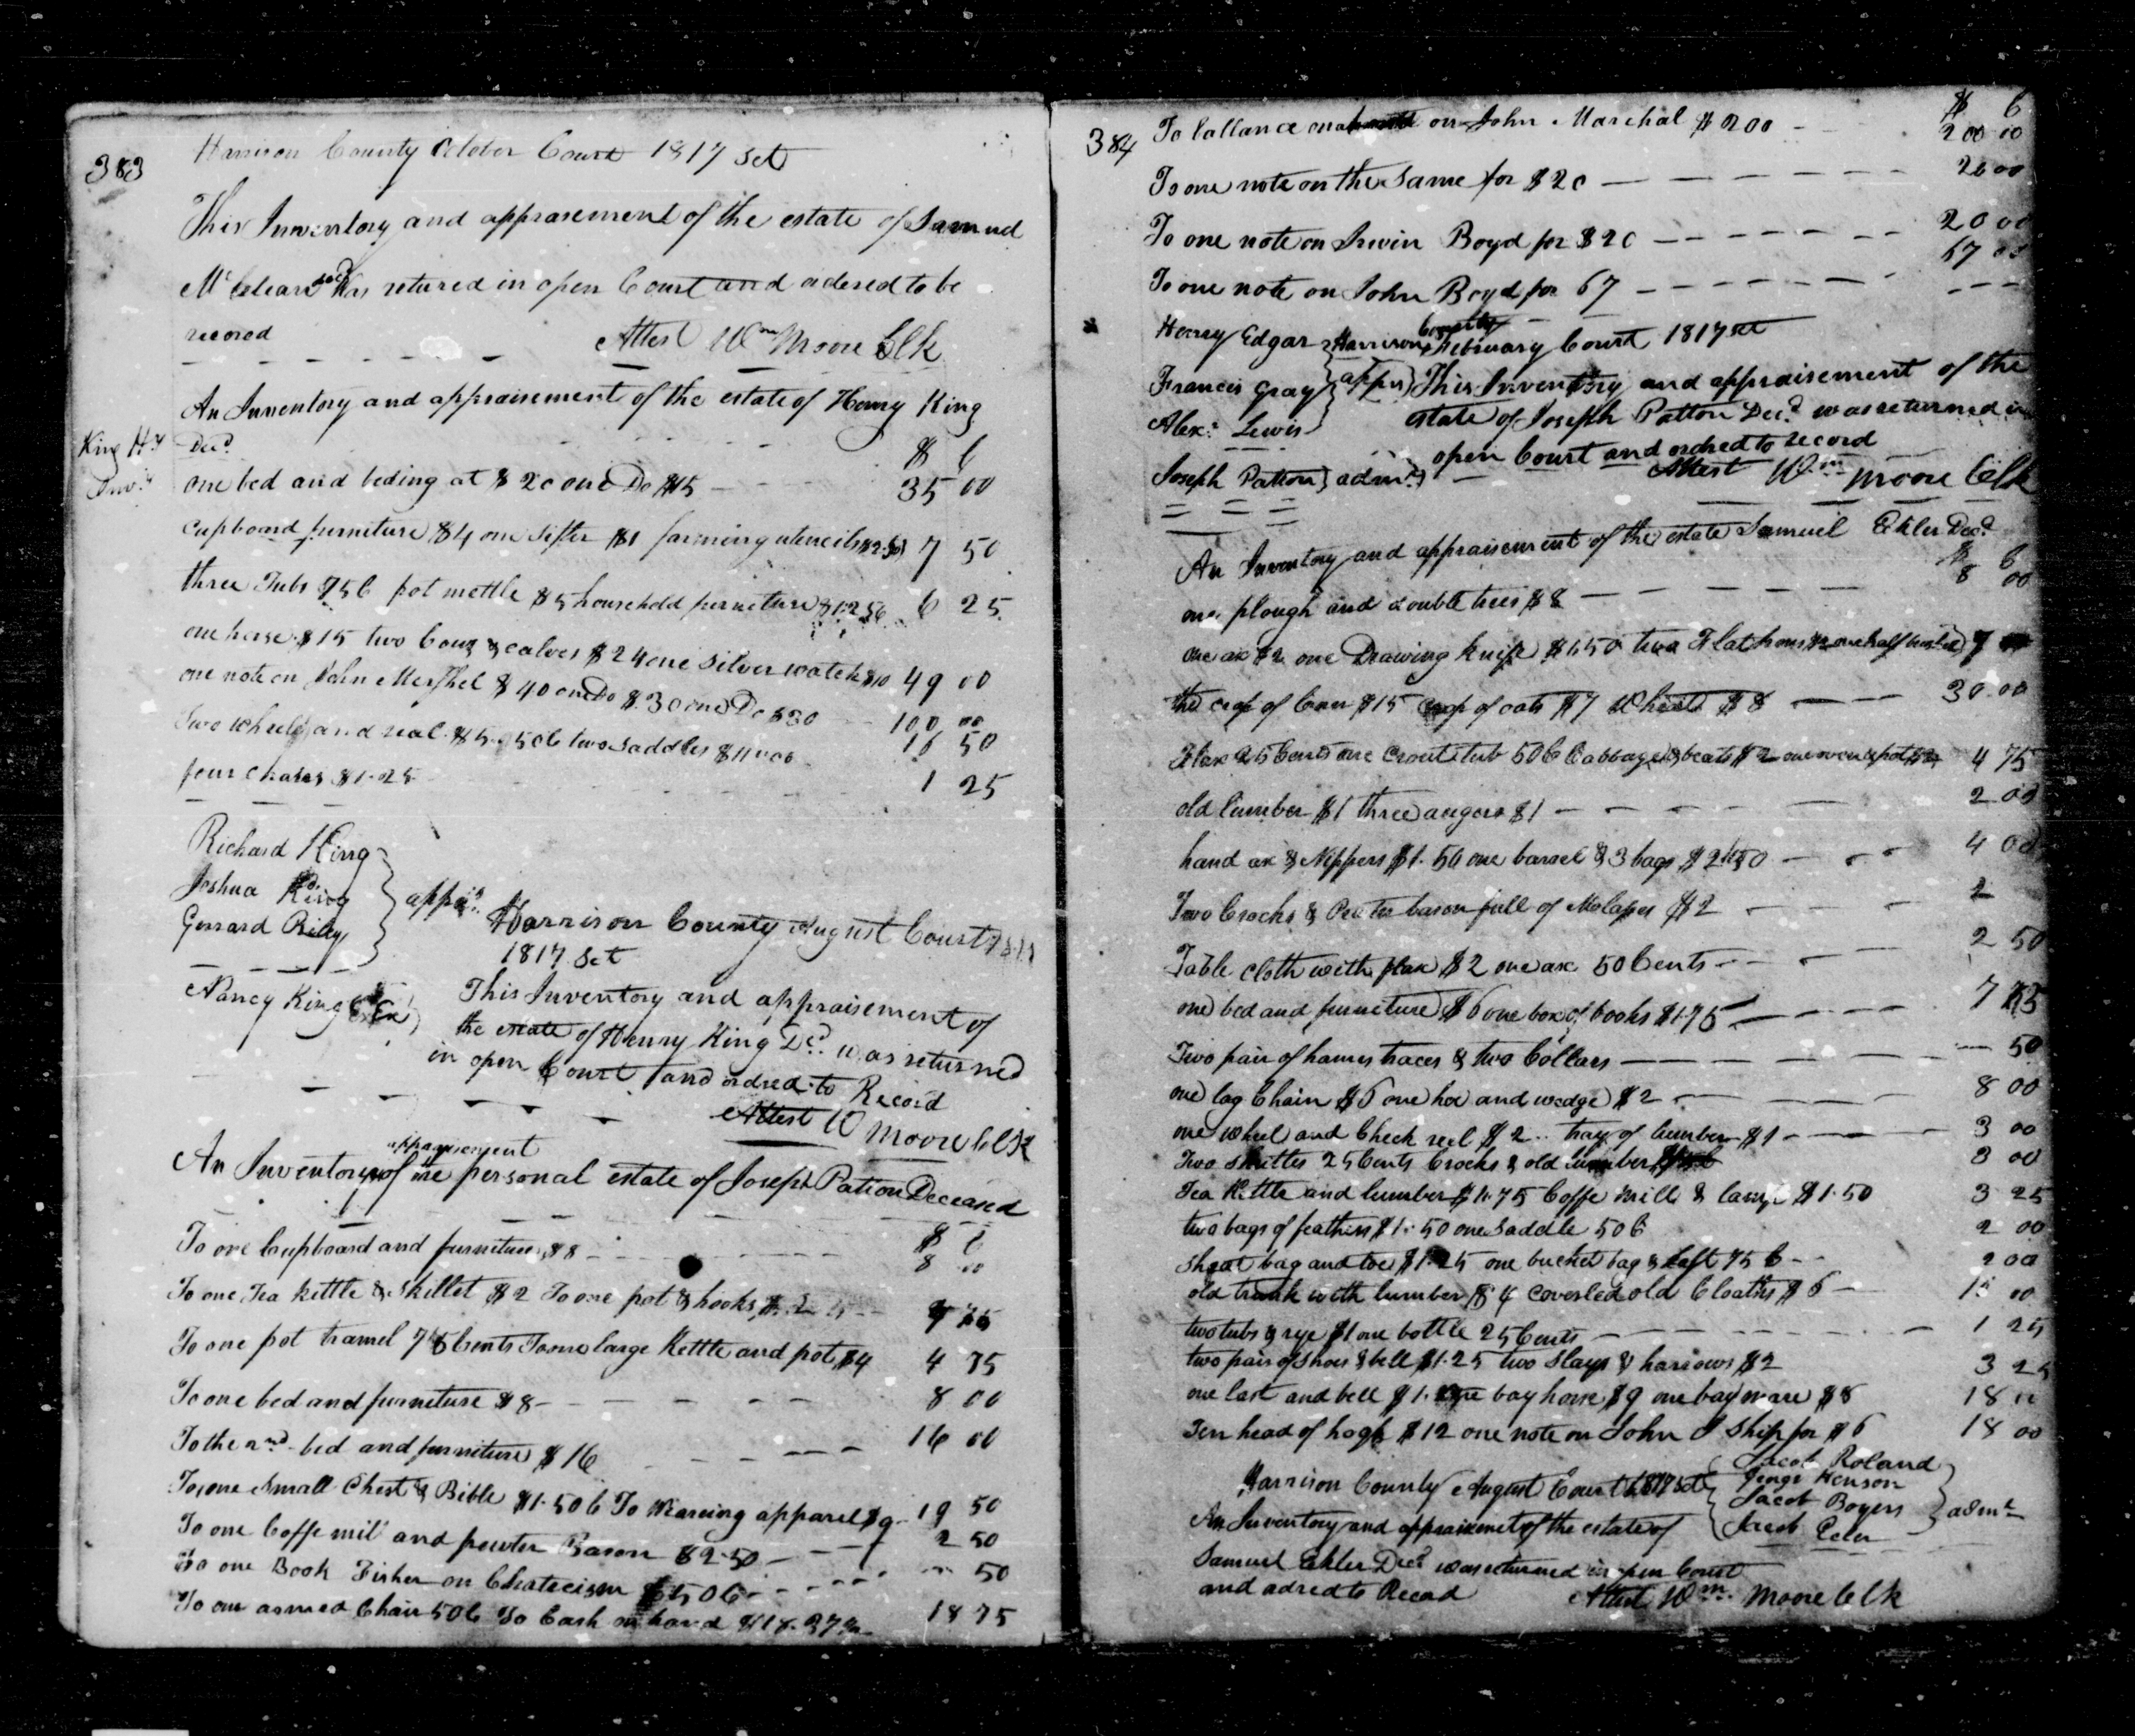 383
Harrison County October Court 1817 Sct
This Inventory and apprasement of the estate of Samuel
McClean decd Was retured in open Court and ordered to be
record Attest Wm Moore Clk
An Inventory and appraisement of the estate of Henry King
King Hy Decd $ C
Invy one bed and beding at $20 one Do $15 35 00
cupboard furniture $4 one sifter $1 farming utencils $2.50 7 50
three Tubs 75 C pot mettle $5 household furniture 6 25
one horse $15 two Cows & calves $24 one silver watch $10 49 00
one note on John Mershel $40 one Do $30 one Do $30 100 00
Two wheels and real $5.50 C two saddles $11.00 16 50
four chairs $1.25 1 25
Richard King
Joshua King
Gerrard Riley
apprs
Harrison County August Court
1817 Sct
Nancy King Ex
This Inventory and appraisement of
the estate of Henry King Decd was returned
in open Court and ordred to Record
Attest W Moore Clk
An Inventory appraisement of the personal estate of Joseph Patton Deceased
$ C
To one Cupboard and furniture $8 8 00
To one Tea kettle & skillet $2 To one pot & hooks
To one pot tramel 75 Cents To one large Kettle and pot $4 4 75
To one bed and furniture $8 8 00
To the 2nd bed and furniture $16 16 00
To one Small Chest & Bible $1.50 C To Wearing apparel 19 50
To one Coffe mill and pewter Bason $2.50 2 50
To one Book Fisher on Chatecism 50 C 50
To one armed Chair 50 C To Cash on hand $18.37 18 75
384
$ C
To ballance on on John Marshal $200 200 00
To one note on the Same for $20 20 00
To one note on Irwin Boyd for $20 20 00
To one note on John Boyd for 67 67 00
Henry Edgar
Francis Gray
Alexr Lewis
apprs
Harrison County February Court 1817 sct
This Inventory and appraisement of the
estate of Joseph Patton Decd was returned in
open Court and ordred to record
Joseph Patton admr Attest Wm Moore Clk
An Inventory and appraisement of the estate Samuel Ekler Decd
$ C
one plough and double trees $8 8 00
one ax $2 one Drawing knife $1.50 two Flat Irons one half bushel 7
the crop of Corn $15 crop of oats $7 Wheat $8 30 00
Flax 25 Cents one Crout tub 50 C Cabbage & beats $2 one oven & pot $2 4 75
old lumber $1 three augers $1 2 00
hand ax & Nippers $1.50 one barrel & 3 bags $2.50 4 00
Two Crocks & Peuter bason full of Molasses $2 2
Table cloth with flax $2 one ax 50 Cents 2 50
one bed and furniture $6 one box of books $1.75
Two pair of hames traces & two Collars 50
one log Chain $6 one hoe and wedge $2 8 00
one wheel and Check reel $2 tray of lumber $1 3 00
Two shuttles 25 Cents Crocks & old lumber 3 00
Tea Kettle and lumber $1.75 Coffe mill & lamp $1.50 3 25
two bags of feathers $1.50 one Saddle 50 C 2 00
bag and tow $1.25 one bucket bag & 75 C 2 00
old trunk with lumber $4 coverled old Cloaths $6 00
two tubs & rye $1 one bottle 25 Cents 1 25
two pair of shoes & bell $1.25 two Slays & harrows $2 3 25
one last and bell $1. bay horse $9 one bay mare $8 18
Ten head of hogs $12 one note on John Ship for $6 18 00
Harrison County August Court 1817 Sct
Jacob Roland
Henson
Jacob Boyers
Jacob
admr
An Inventory and appraisemet of the estate of
Samuel Ekler Decd was returned in open Court
and adred to Recod Attest Wm Moore Clk